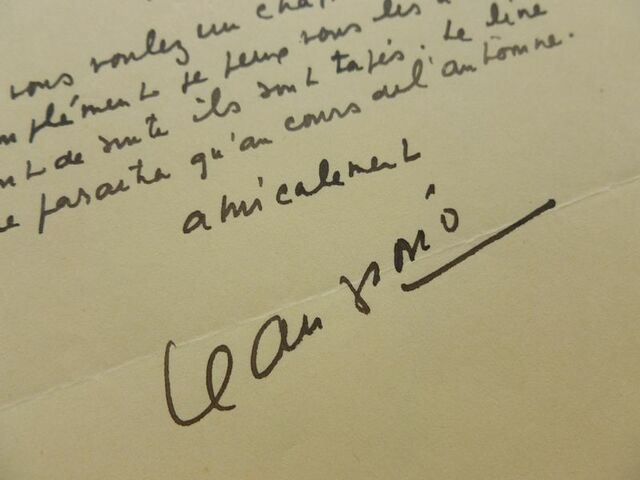 vous voulez un chap
mplément je peux vous les
nt de suite ils sont tapés. Le livre
ne paraitra qu'au cours de l'automne.
amicalement
Jean Giono